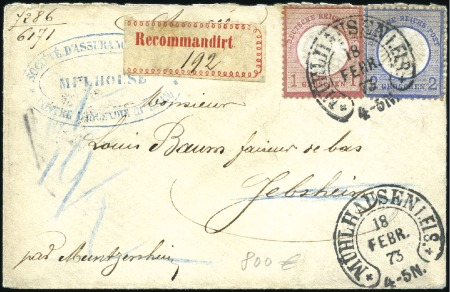 7286
6071
SOCIÉTÉ D'ASSURAN
MULHOUSE
CONTRE L'INCENDIE
Recommandirt.
192
DEUTSCHE REICHS-POST
1 GROSCHEN 1
DEUTSCHE REICHS-POST
2 GROSCHEN 2
MÜHLHAUSEN I.E.
18
FEBR.
73
4-5N.
Monsieur
Louis Baum faiseur de bas
Jebsheim
par Muntzenheim
800 €
MÜHLHAUSEN I.E.
18
FEBR.
73
4-5N.